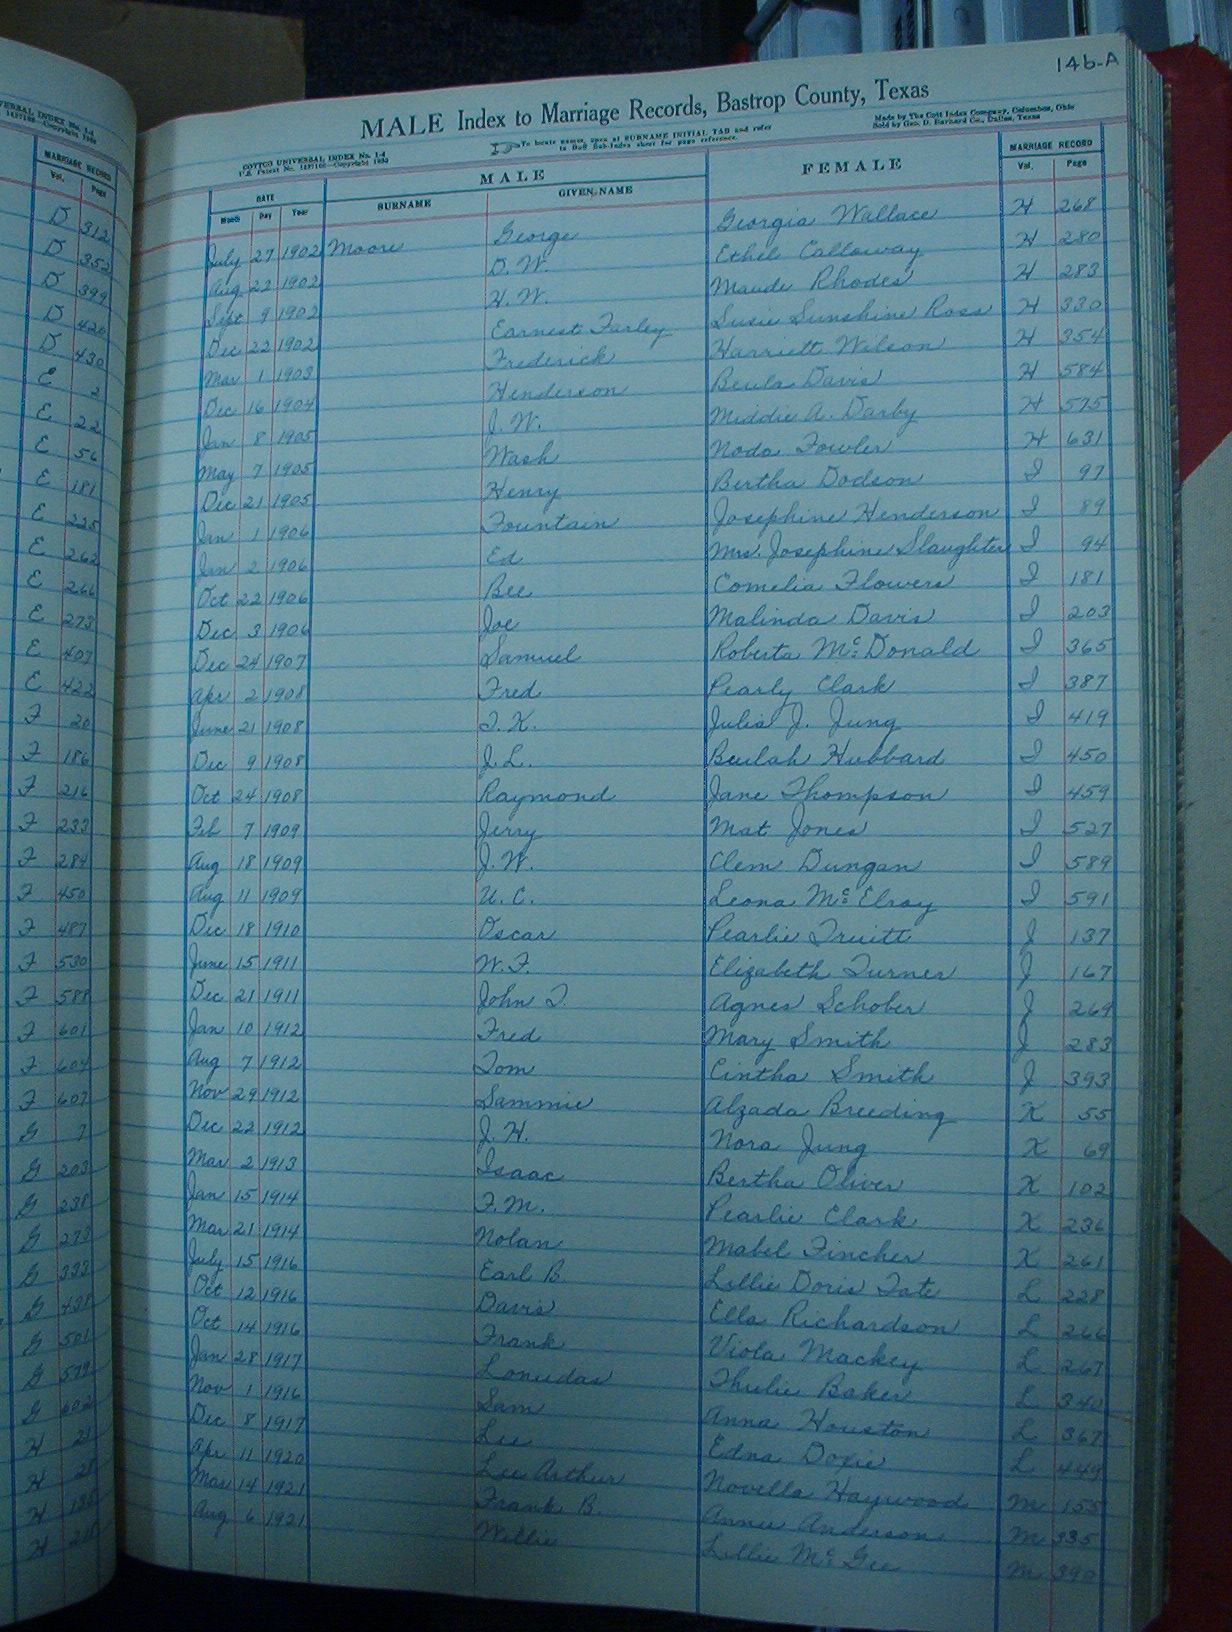 VERSAL INDEX No. 1-4
MARRIAGE RECORD
Vol. Page
D 312
D 352
D 399
D 420
D 430
E 2
E 22
E 56
E 181
E 225
E 262
E 266
E 273
E 407
E 422
F 20
F 186
F 216
F 233
F 284
F 450
F 487
F 530
F 588
F 601
F 604
F 607
G 7
G 203
G 238
G 273
G 333
G 438
G 501
G 579
G 602
H 21
H
H 135
H
146-A
MALE Index to Marriage Records, Bastrop County, Texas
COTTCO UNIVERSAL INDEX No. 1-4
To locate names, open at SURNAME INITIAL TAB and refer to Buff Sub-Index sheet for page reference.
Made by The Cott Index Company, Columbus, Ohio
Sold by Geo. D. Barnard Co., Dallas, Texas
DATE MALE FEMALE MARRIAGE RECORD
Month Day Year SURNAME GIVEN NAME Vol. Page
July 27 1902 Moore George Georgia Wallace H 268
Aug 22 1902 D. W. Ethel Calloway H 280
Sept 9 1902 H. W. Maude Rhodes H 283
Dec 22 1902 Earnest Farley Susie Sunshine Ross H 330
Mar 1 1903 Frederick Harriett Wilson H 354
Dec 16 1904 Henderson Beula Davis H 584
Jan 8 1905 J. W. Middie A. Darby H 575
May 7 1905 Wash Noda Fowler H 631
Dec 21 1905 Henry Bertha Dodson I 97
Jan 1 1906 Fountain Josephine Henderson I 89
Jan 2 1906 Ed Mrs. Josephine Slaughter I 94
Oct 22 1906 Bee Cornelia Flowers I 181
Dec 3 1906 Joe Malinda Davis I 203
Dec 24 1907 Samuel Roberta McDonald I 365
Apr 2 1908 Fred Pearly Clark I 387
June 21 1908 T. K. Julia J. Jung I 419
Dec 9 1908 J. L. Beulah Hubbard I 450
Oct 24 1908 Raymond Jane Thompson I 459
Feb 7 1909 Jerry Mat Jones I 527
Aug 18 1909 J. W. Clem Dungan I 589
Aug 11 1909 U. C. Leona McElroy I 591
Dec 18 1910 Oscar Pearlie Truitt J 137
June 15 1911 W. F. Elizabeth Turner J 167
Dec 21 1911 John T. Agnes Schober J 269
Jan 10 1912 Fred Mary Smith J 283
Aug 7 1912 Tom Cintha Smith J 393
Nov 29 1912 Sammie Alzada Breeding K 55
Dec 22 1912 J. H. Nora Jung K 69
Mar 2 1913 Isaac Bertha Oliver K 102
Jan 15 1914 F. M. Pearlie Clark K 236
Mar 21 1914 Nolan Mabel Fincher K 261
July 15 1916 Earl B. Lillie Doris Tate L 228
Oct 12 1916 Davis Ella Richardson L 266
Oct 14 1916 Frank Viola Mackey L 267
Jan 28 1917 Lonudas Thulie Baker L 340
Nov 1 1916 Sam Anna Houston L 367
Dec 8 1917 Lee Edna Doxie L 449
Apr 11 1920 Lee Arthur Novella Haywood M 155
Mar 14 1921 Frank B. Annie Anderson M 335
Aug 6 1921 Willie Lillie McGee M 390